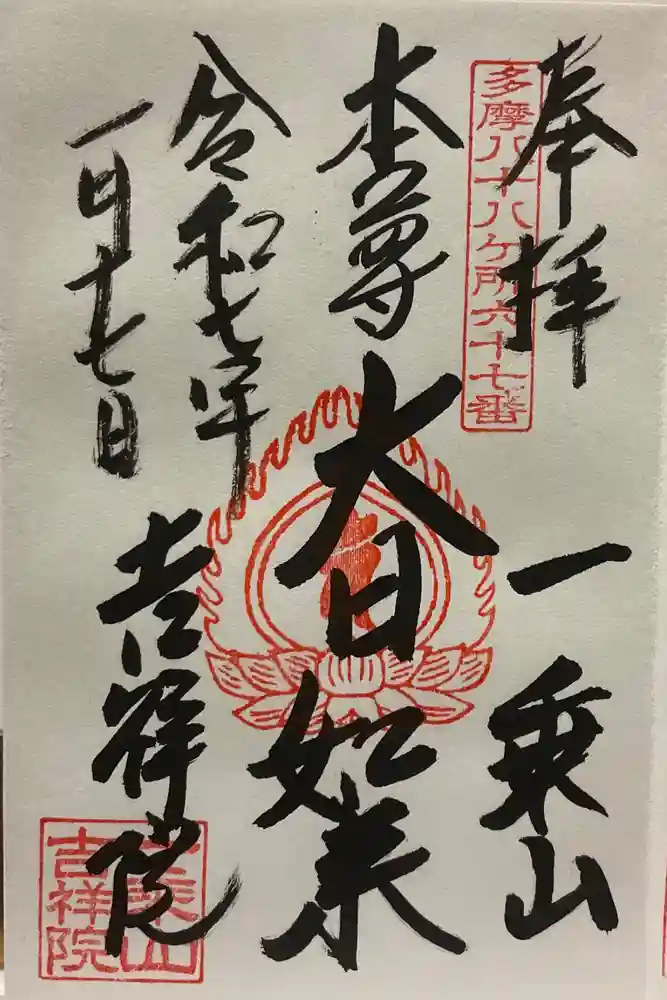 奉拝
多摩八十八ケ所六十七番
一乗山
本尊
大日如来
令和七年
一月十七日
吉祥院
一乗山
吉祥院